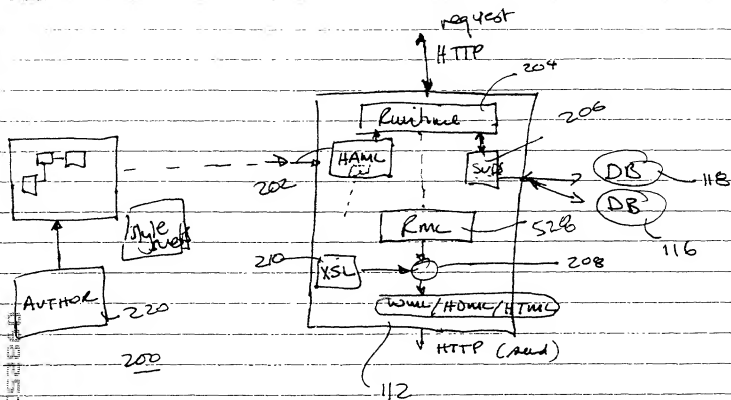 request
HTTP
204
Runtime
206
HAML
202
SVCS
DB
118
DB
116
RML
528
Style
Sheets
210
XSL
208
AUTHOR
220
WML/HDML/HTML
200
HTTP (send)
112